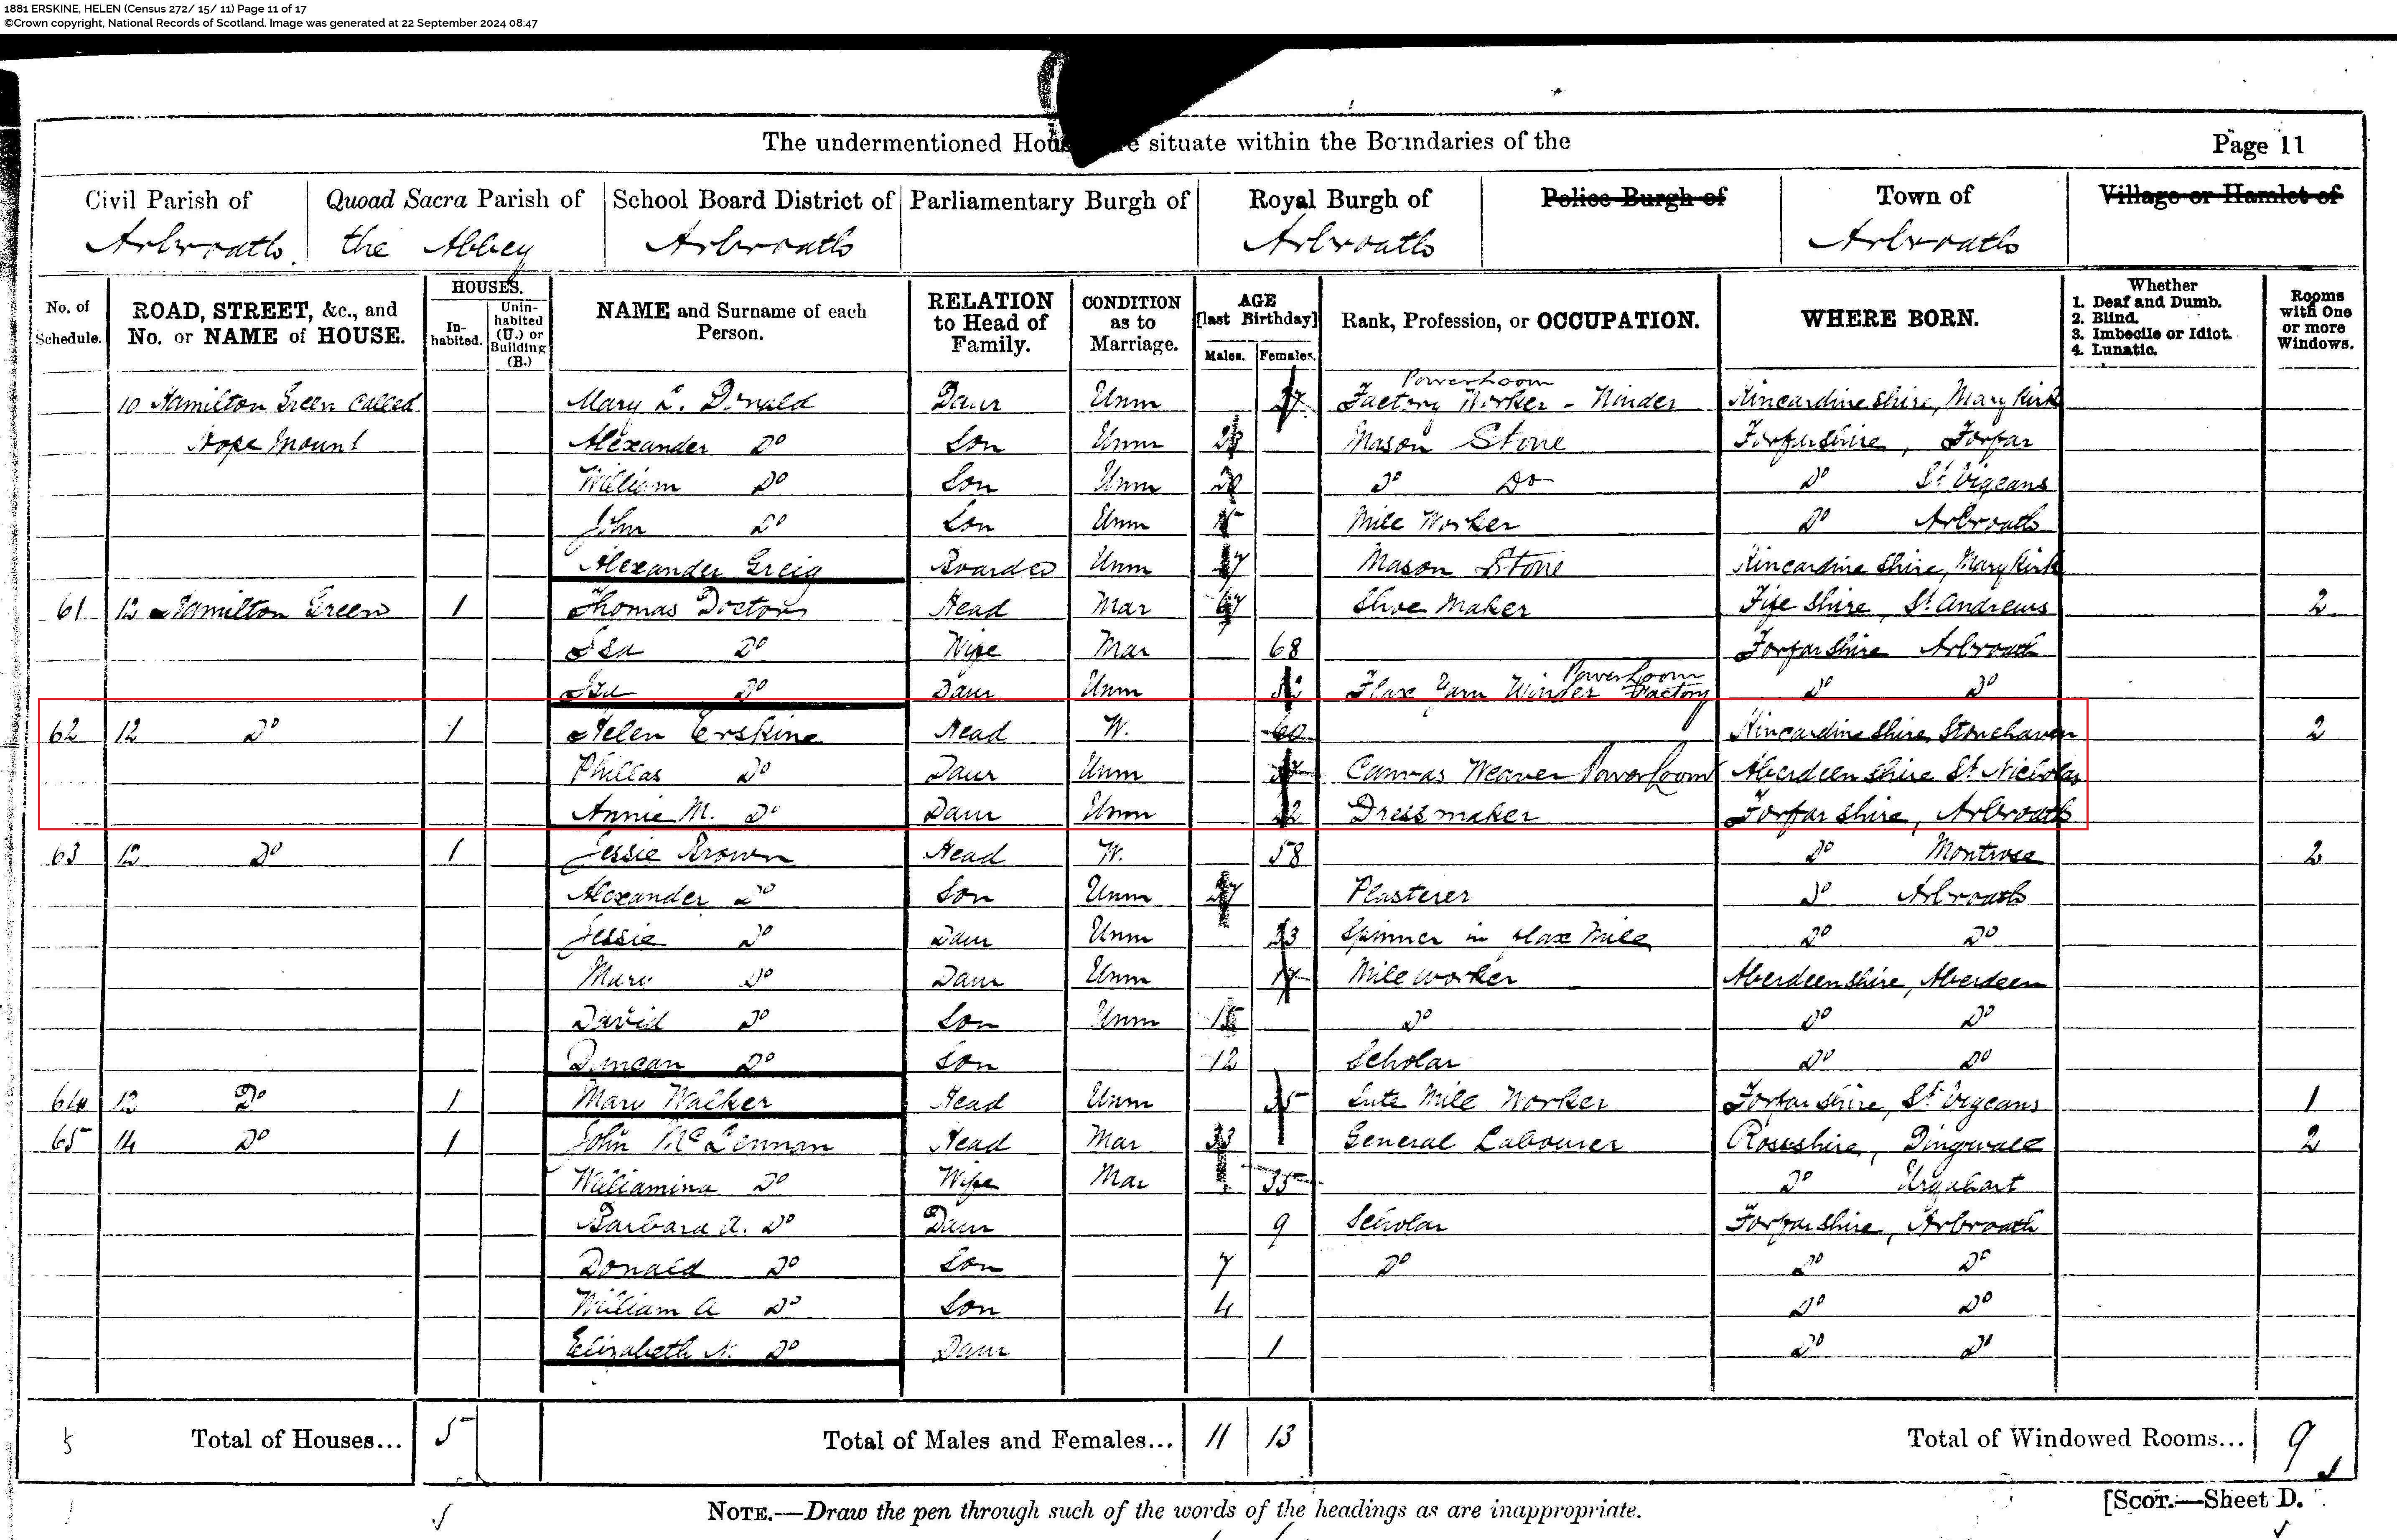 1881 ERSKINE, HELEN (Census 272/ 15/ 11) Page 11 of 17
©Crown copyright, National Records of Scotland. Image was generated at 22 September 2024 08:47
The undermentioned Hou e situate within the Boundaries of the
Page 11
Civil Parish of Quoad Sacra Parish of School Board District of Parliamentary Burgh of Royal Burgh of Police Burgh of Town of Village or Hamlet of
Arbroath. the Abbey Arbroath Arbroath Arbroath
No. of Schedule. ROAD, STREET, &c., and No. or NAME of HOUSE. HOUSES. In-habited. Unin-habited (U.) or Building (B.) NAME and Surname of each Person. RELATION to Head of Family. CONDITION as to Marriage. AGE [last Birthday] Males. Females. Rank, Profession, or OCCUPATION. WHERE BORN. Whether 1. Deaf and Dumb. 2. Blind. 3. Imbecile or Idiot. 4. Lunatic. Rooms with One or more Windows.
10 Hamilton Green Called Mary L. Donald Daur Unm 27 Powerloom Factory Worker - Winder Kincardineshire, Marykirk
Hope Mount Alexander Do Son Unm Mason Stone Forfarshire, Forfar
William Do Son Unm 20 Do Do Do St Vigeans
John Do Son Unm 15 Mill Worker Do Arbroath
Alexander Greig Boarder Unm Mason Stone Kincardine Shire, Marykirk
61 12 Hamilton Green 1 Thomas Doctor Head Mar 67 Shoe Maker Fife Shire, St Andrews 2
Isa Do Wife Mar 68 Forfar Shire Arbroath
Isa Do Daur Unm Flax Yarn Winder Powerloom Factory Do Do
62 12 Do 1 Helen Erskine Head W. 60 Kincardine Shire Stonehaven 2
Phillas Do Daur Unm Canvas Weaver Powerloom Aberdeen Shire St Nicholas
Annie M. Do Daur Unm 22 Dressmaker Forfar Shire, Arbroath
63 12 Do 1 Jessie Brown Head W. 58 Do Montrose 2
Alexander Do Son Unm 27 Plasterer Do Arbroath
Jessie Do Daur Unm 23 Spinner in Flax Mill Do Do
Mary Do Daur Unm 17 Mill worker Aberdeenshire, Aberdeen
David Do Son Unm 15 Do Do Do
Duncan Do Son 12 Scholar Do Do
64 12 Do 1 Mary Walker Head Unm 35 Jute Mill Worker Forfar Shire, St Vigeans 1
65 14 Do 1 John McLennan Head Mar 33 General Labourer Rossshire, Dingwall 2
Williamina Do Wife Mar 35 Do Urquhart
Barbara A. Do Daur 9 Scholar Forfar Shire, Arbroath
Donald Do Son 7 Do Do Do
William A Do Son 4 Do Do
Elizabeth N. Do Daur 1 Do Do
5 Total of Houses... 5 Total of Males and Females... 11 13 Total of Windowed Rooms... 9
NOTE.—Draw the pen through such of the words of the headings as are inappropriate.
[SCOT.—Sheet D.